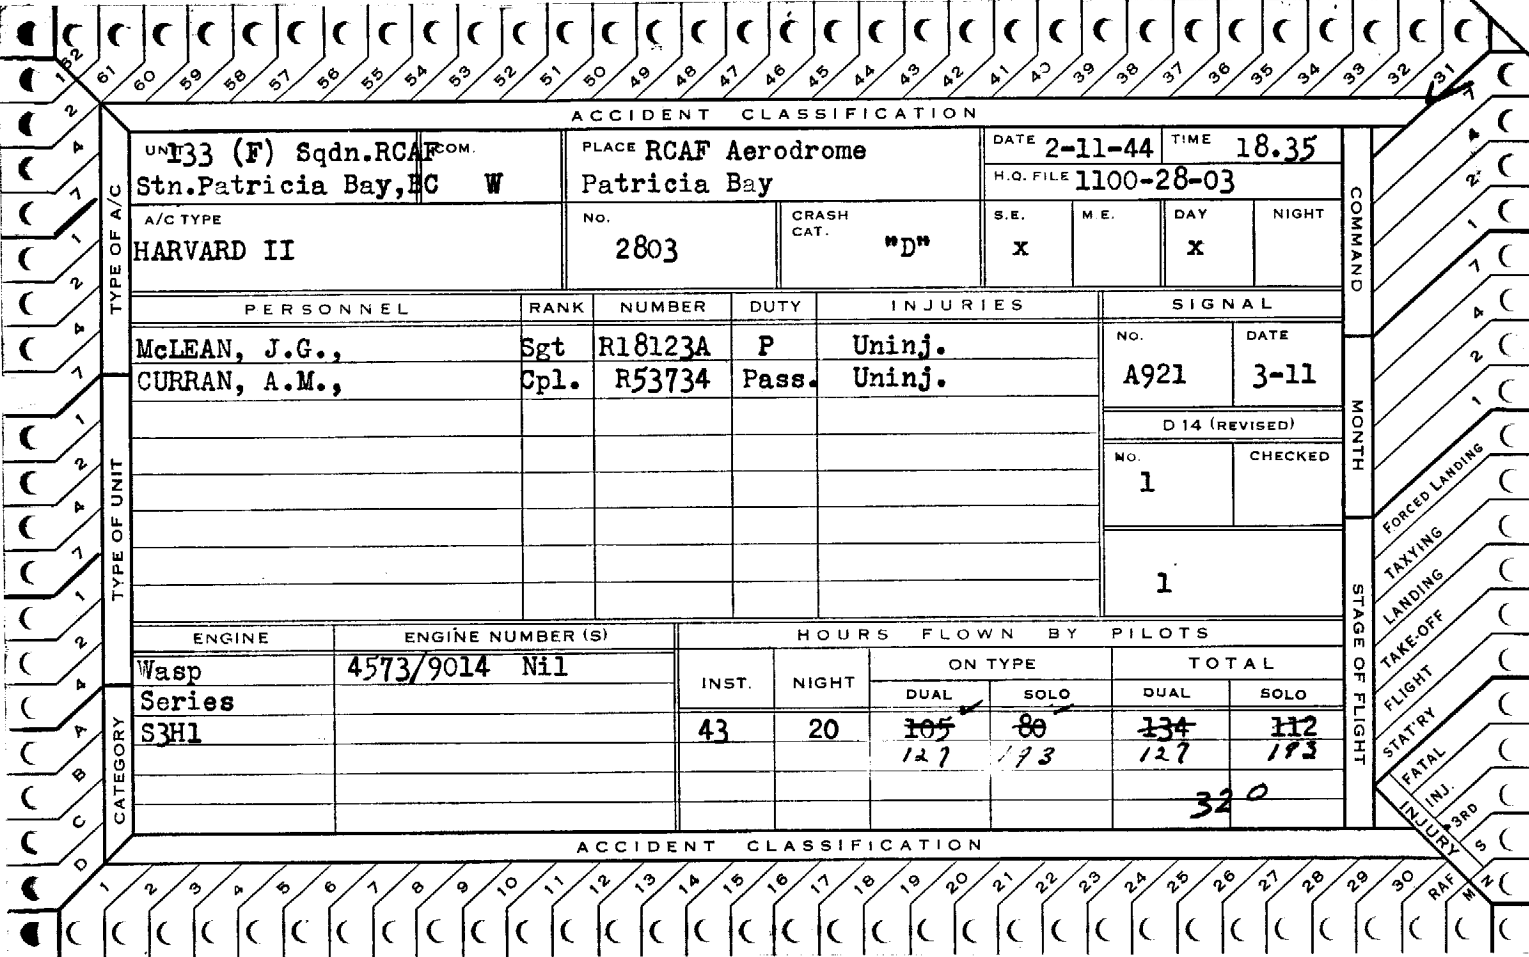 62 61 60 59 58 57 56 55 54 53 52 51 50 49 48 47 46 45 44 43 42 41 40 39 38 37 36 35 34 33 32 31
ACCIDENT CLASSIFICATION
UNIT 133 (F) Sqdn.RCAF COM.
Stn.Patricia Bay,BC W
PLACE RCAF Aerodrome
Patricia Bay
DATE 2-11-44 TIME 18.35
H.Q. FILE 1100-28-03
A/C TYPE
HARVARD II
No.
2803
CRASH
CAT.
"D"
S.E. M.E. DAY NIGHT
x x
PERSONNEL RANK NUMBER DUTY INJURIES SIGNAL
McLEAN, J.G., Sgt R18123A P Uninj.
CURRAN, A.M., Cpl. R53734 Pass. Uninj.
No. DATE
A921 3-11
D 14 (REVISED)
No. CHECKED
1
1
ENGINE ENGINE NUMBER (S) HOURS FLOWN BY PILOTS
Wasp 4573/9014 Nil
Series
S3H1
INST. NIGHT ON TYPE TOTAL
DUAL SOLO DUAL SOLO
43 20 105 80 134 112
127 193 127 193
320
ACCIDENT CLASSIFICATION
1 2 3 4 5 6 7 8 9 10 11 12 13 14 15 16 17 18 19 20 21 22 23 24 25 26 27 28 29 30 RAF M N
TYPE OF A/C
TYPE OF UNIT
CATEGORY
1 2 4 7 1 2 4 7 1 2 4 7 1 2 4 A B C D
COMMAND
MONTH
STAGE OF FLIGHT
7 4 2 1 7 4 2 1
FORCED LANDING
TAXYING
LANDING
TAKE-OFF
FLIGHT
STAT'RY
FATAL
INJ.
3RD
S
INJURY